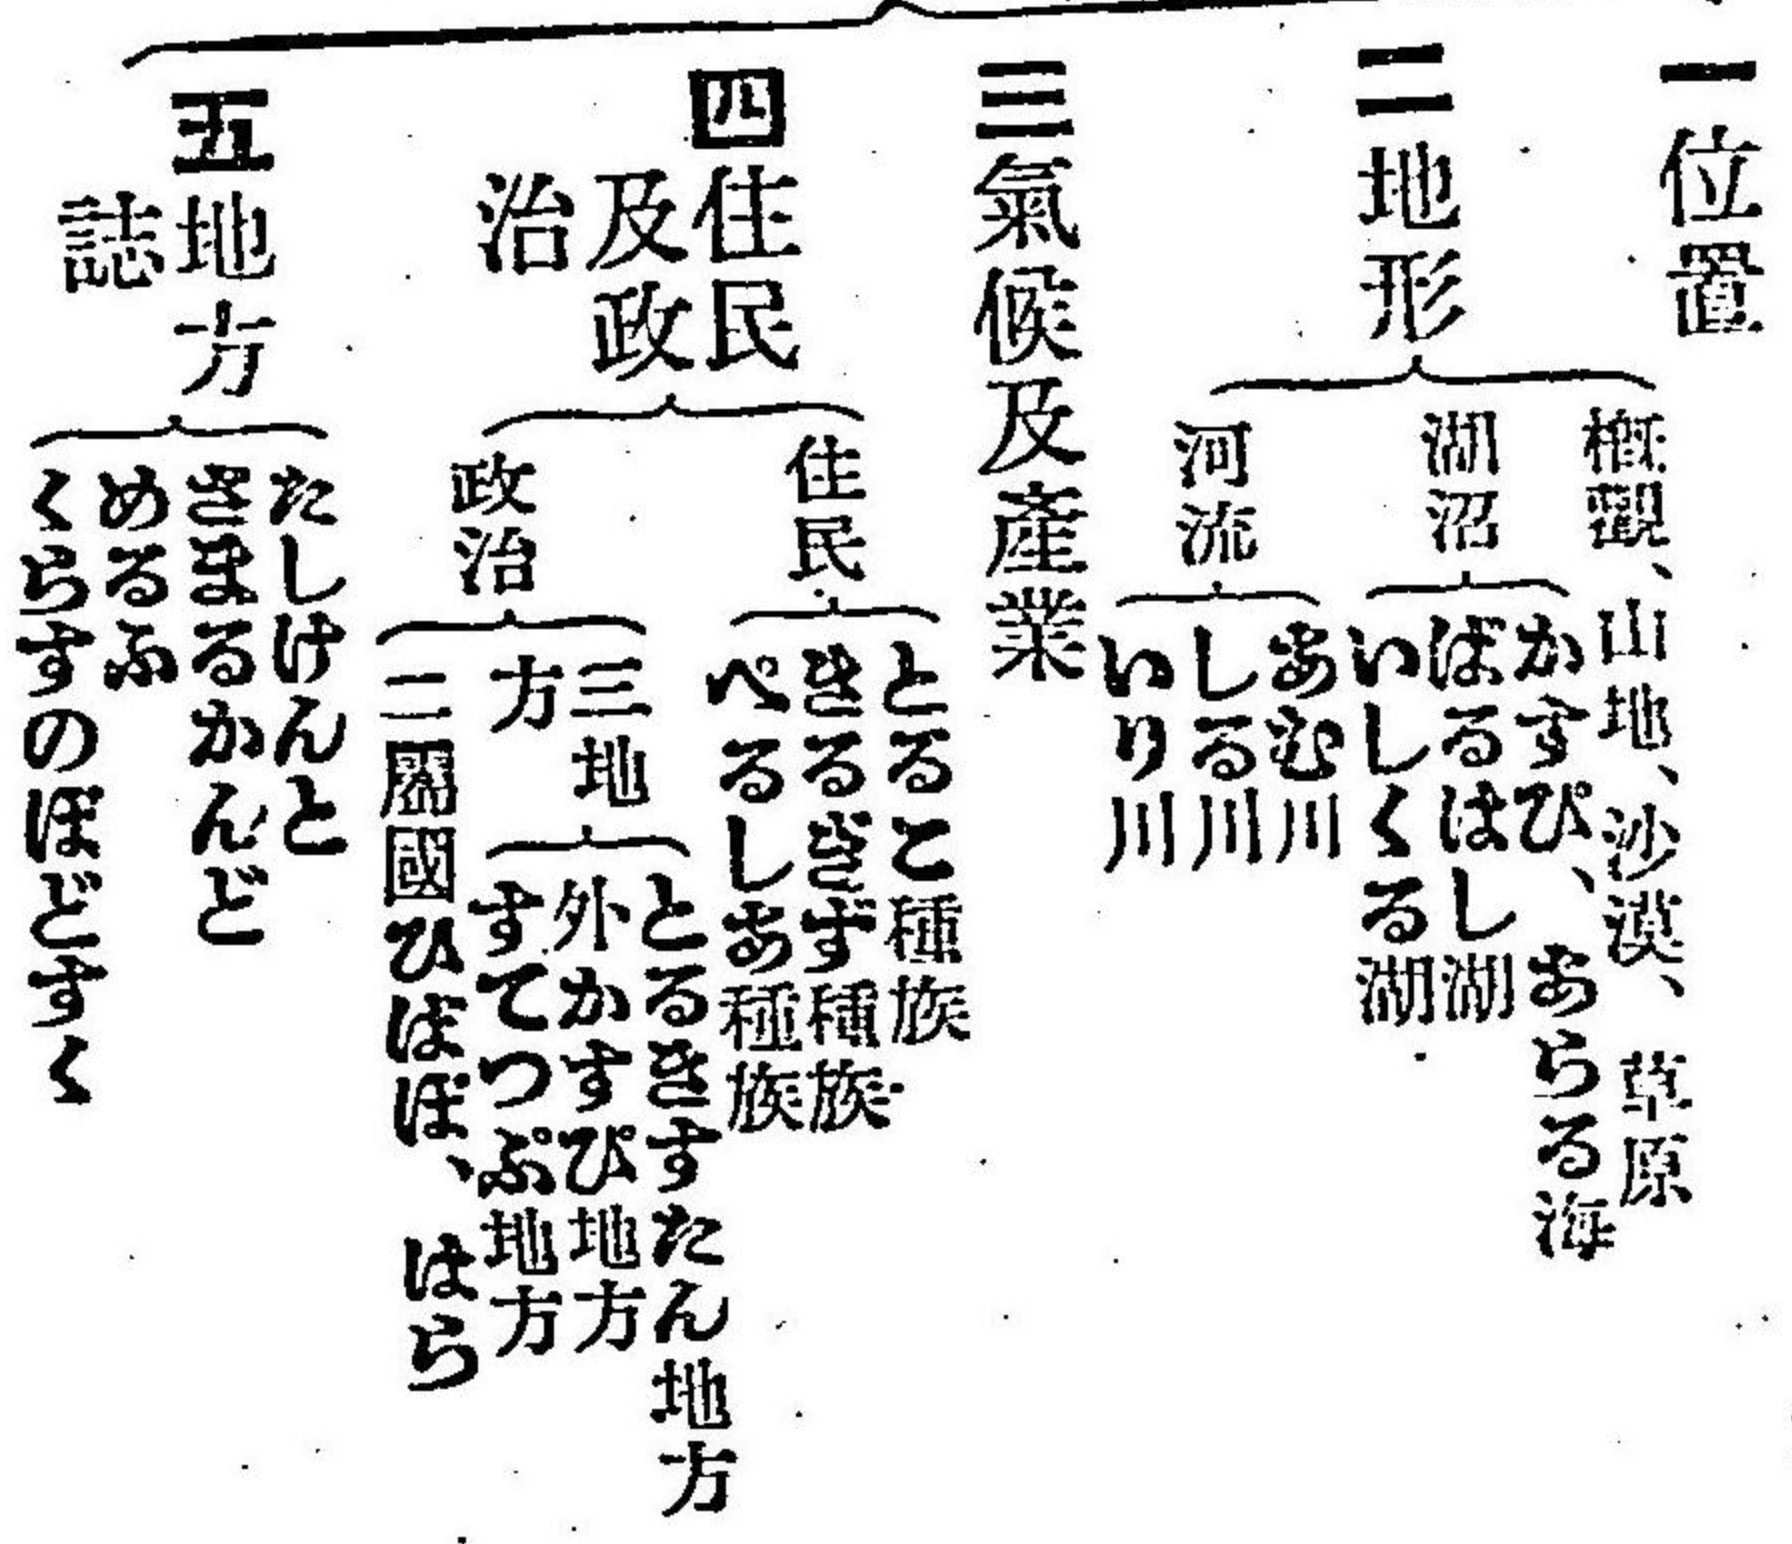 一位置
二地形
概觀、山地、沙漠、草原
湖沼
かすぴ、あらる海
ばるはし湖
いしくる湖
河流
あむ川
しる川
いり川
三氣候及產業
四住民
及政
治
住民
とるこ種族
きるぎず種族
ぺるしあ種族
政治
三地
方
とるきすたん地方
外かすぴ地方
すてつぷ地方
二國ひばぼ、はら
五地方
誌
たしけんと
さまるかんど
めるふ
くらすのぼどすく